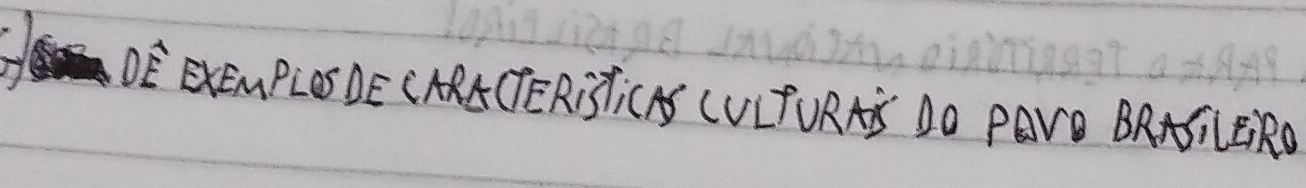 DÊ EXEMPLOS DE CARACTERISTICAS CULTURAIS DO POVO BRASILEIRO